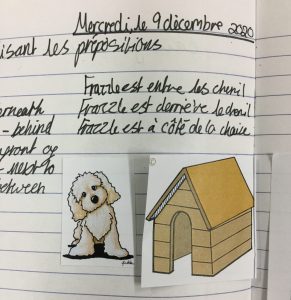 Mercredi, le 9 décembre 2020
isant les prépositions
Frazzle est entre les chenil
erneath Frazzle est derrière le chenil
- behind Frazzle est à côté de la chaise
- next to
between